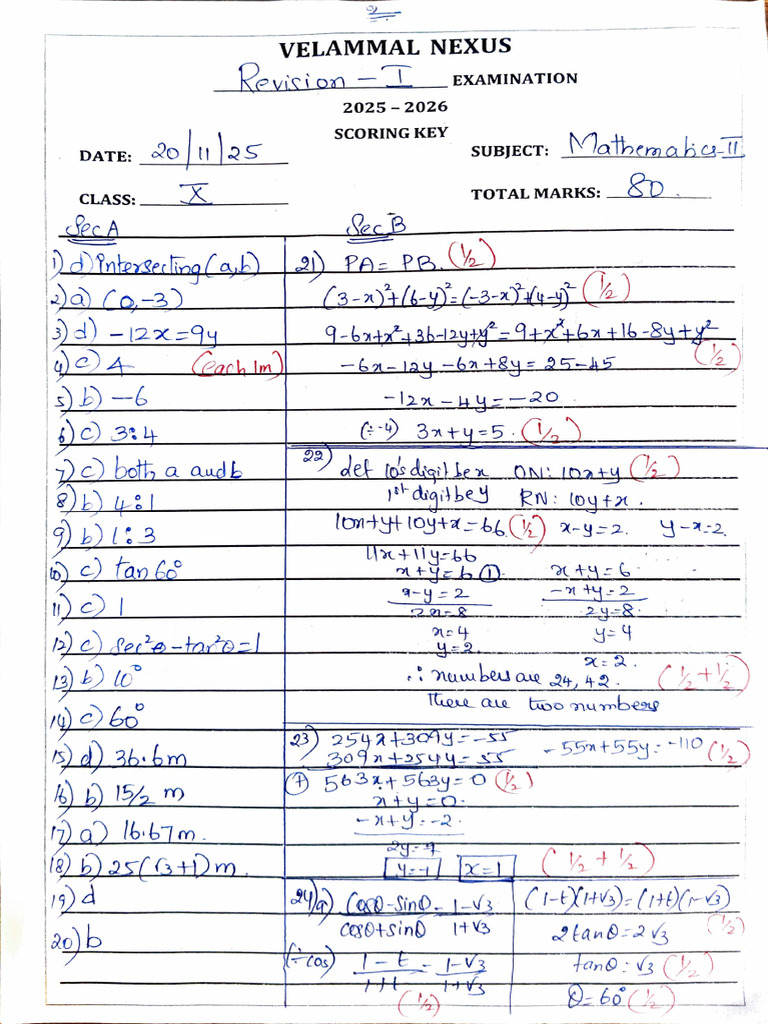 2
VELAMMAL NEXUS
Revision - I EXAMINATION
2025 – 2026
SCORING KEY
DATE: 20/11/25
SUBJECT: Mathematics-II
CLASS: X
TOTAL MARKS: 80.
Sec A
1) d) intersecting (a,b)
2) a) (0,-3)
3) d) -12x=9y
4) c) 4 (each 1m)
5) b) -6
6) c) 3:4
7) c) both a and b
8) b) 4:1
9) b) 1:3
10) c) tan 60°
11) c) 1
12) c) sec²θ-tan²θ=1
13) b) 10°
14) c) 60°
15) d) 36.6m
16) b) 15/2 m
17) a) 16.67m.
18) b) 25(√3+1)m.
19) d
20) b
Sec B
21) PA = PB. (1/2)
(3-x)²+(6-y)²=(-3-x)²+(4-y)² (1/2)
9-6x+x²+36-12y+y²=9+x²+6x+16-8y+y²
-6x-12y-6x+8y=25-45 (1/2)
-12x-4y=-20
(÷-4) 3x+y=5. (1/2)
22) let 10's digit be x ON: 10x+y (1/2)
1st digit be y RN: 10y+x.
10x+y+10y+x=66 (1/2) x-y=2. y-x=2.
11x+11y=66
x+y=6 ① x+y=6
x-y=2 -x+y=2
2x=8 2y=8
x=4 y=4
y=2. x=2.
∴ numbers are 24, 42. (1/2+1/2)
there are two numbers
23) 254x+309y=-55 -55x+55y=-110 (1/2)
309x+254y=55
(+) 563x+563y=0 (1/2)
x+y=0
-x+y=-2
y=-1 x=1 (1/2+1/2)
24) a) cosθ-sinθ/cosθ+sinθ = 1-√3/1+√3 (1-t)(1+√3)=(1+t)(1-√3)
2tanθ=2√3 (1/2)
(÷cos) 1-t/1+t = 1-√3/1+√3 (1/2) tanθ=√3 (1/2)
θ=60° (1/2)